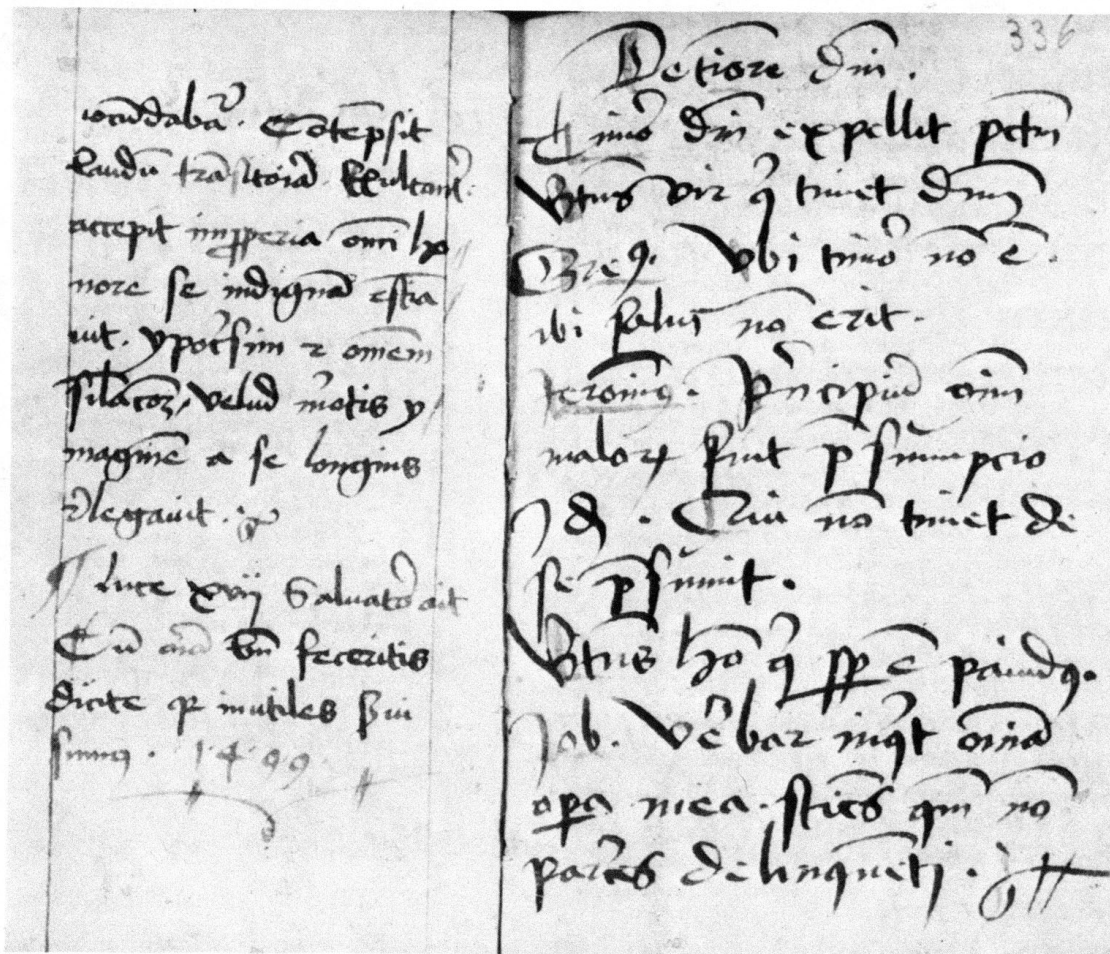 iocu͂dabat᷑. Co͂te͂psit
laude͂ tra͂sitoria͂. Exultant᷑.
accepit imp̱peria om͂i ho
nore se indignu͂ estia͂
uit. ypoc᷑sim ⁊ omnem
sil͂aco͂ꝫ, velud mo᷑tis y
magine͂ a se longius
r᷑legauit.
¶ luce xvij Saluato᷑ ait
Cu͂ o͂ia bn͂ feceritis
dicite qꝛ inutiles ẜui
sumꝰ. 1499.
336
De ti͂ore dn͂i.
Timo᷑ dn͂i expellit pct͂m
Bt͂us vir qⁱ timet dn͂m
Greꝰ. Vbi timo᷑ no͂ e͂.
ibi salus no͂ erit.
Jeronimꝰ. P᷑ncipiu͂ oi͂m
maloꝝ fuit p͂sumpcio
Jd͂. Qui no͂ timet de
se p͂sumit.
Bt͂us ho͂ qⁱ sp̱ e͂ pauidꝰ.
Job. Ve᷑bar inqⁱt om͂ia
oꝑa mea. scie͂s qm͂ no͂
parc᷑es delinque͂ti.